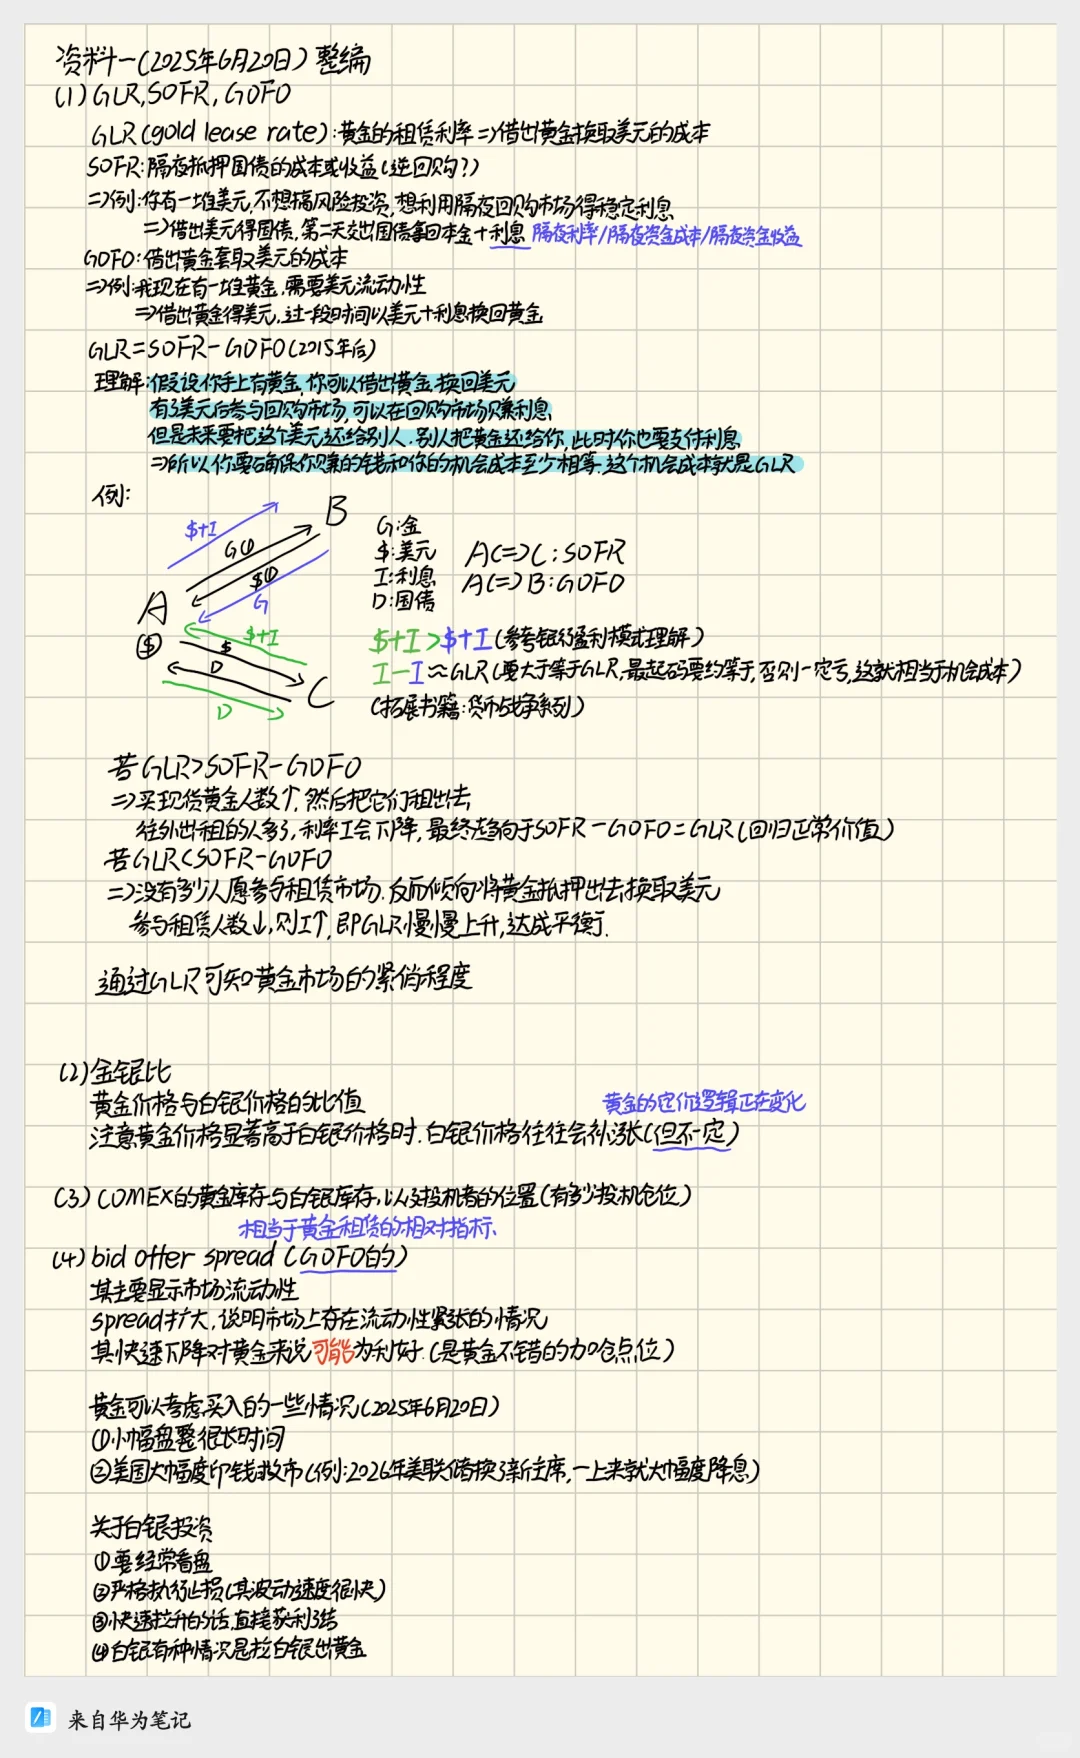 资料一(2025年6月20日)整编
(1)GLR,SOFR,GOFO
GLR(gold lease rate):黄金的租赁利率⇒借出黄金换取美元的成本
SOFR:隔夜抵押国债的成本或收益(逆回购?)
⇒例:你有一堆美元,不想搞风险投资,想利用隔夜回购市场得稳定利息
⇒借出美元得国债,第二天交出国债拿回本金+利息 隔夜利率/隔夜资金成本/隔夜资金收益
GOFO:借出黄金套取美元的成本
⇒例:我现在有一堆黄金,需要美元流动性
⇒借出黄金得美元,过一段时间以美元+利息换回黄金
GLR=SOFR-GOFO(2015年后)
理解:假设你手上有黄金,你可以借出黄金,换回美元
有了美元后参与回购市场,可以在回购市场赚利息
但是未来要把这个美元还给别人.别人把黄金还给你,此时你也要支付利息
⇒所以你要确保你赚的钱和你的机会成本至少相等.这个机会成本就是GLR
例:
$+I
B
G①
$①
G
A
($)
$+I
$
D
C
D
G:金
$:美元
I:利息
D:国债
A⇔C:SOFR
A⇔B:GOFO
$+I>$+I(参考银行盈利模式理解)
I-I≈GLR(要大于等于GLR,最起码要约等于,否则一定亏,这就相当于机会成本)
(拓展书籍:货币战争系列)
若GLR>SOFR-GOFO
⇒买现货黄金人数↑,然后把它们租出去,
往外出租的人多了,利率I会下降,最终趋向于SOFR-GOFO=GLR(回归正常价值)
若GLR<SOFR-GOFO
⇒没有多少人愿参与租赁市场.反而倾向将黄金抵押出去换取美元
参与租赁人数↓,则I↑,即GLR慢慢上升,达成平衡.
通过GLR可知黄金市场的紧俏程度
(2)金银比
黄金价格与白银价格的比值
黄金的定价逻辑正在变化
注意黄金价格显著高于白银价格时.白银价格往往会补涨(但不一定)
(3)COMEX的黄金库存与白银库存,以及投机者的位置(有多少投机仓位)
相当于黄金租赁的相对指标.
(4)bid offer spread(GOFO的)
其主要显示市场流动性
spread扩大,说明市场上存在流动性紧张的情况
其快速下降对黄金来说可能为利好.(是黄金不错的加仓点位)
黄金可以考虑买入的一些情况(2025年6月20日)
①小幅盘整很长时间
②美国大幅度印钱救市(例:2026年美联储换了新主席,一上来就大幅度降息)
关于白银投资
①要经常看盘
②严格执行止损(其波动速度很快)
③快速拉升的话,直接获利了结
④白银有种情况是拉白银出黄金
来自华为笔记